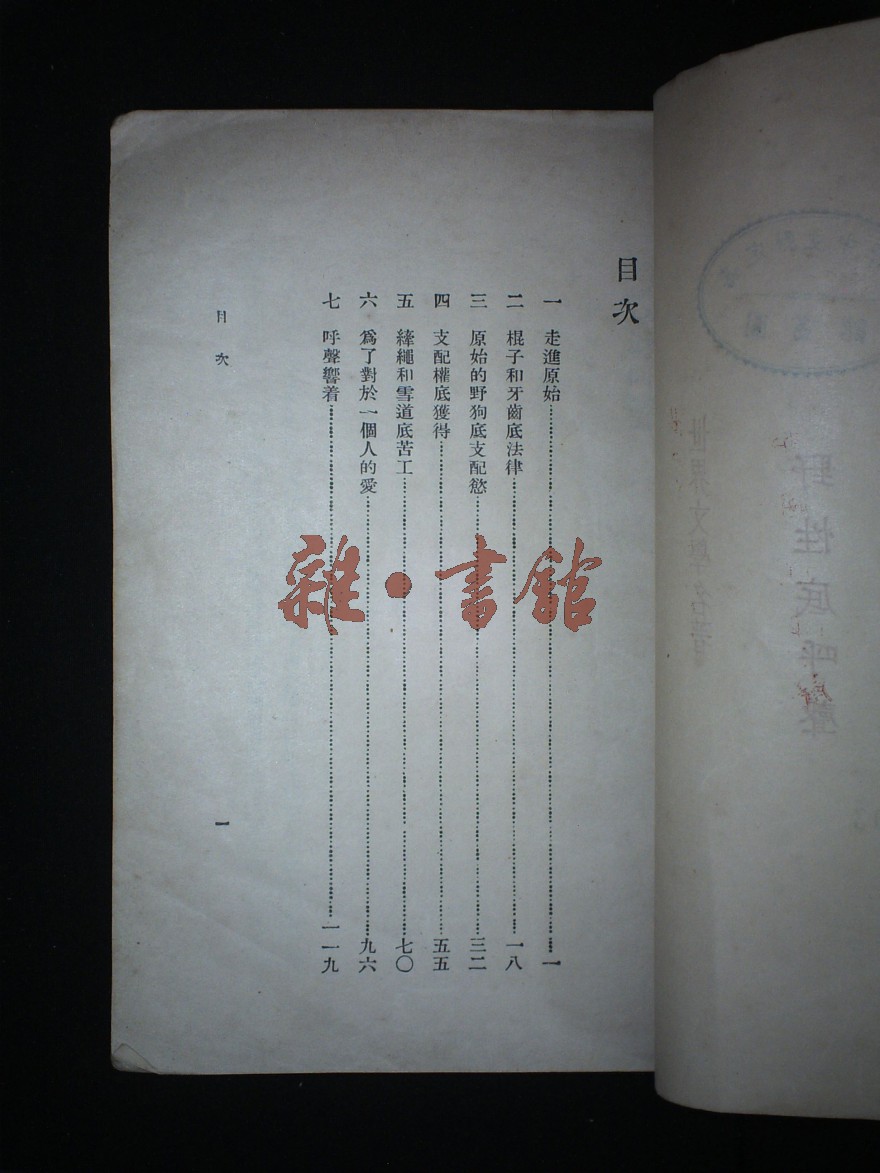 目次
一 走進原始⋯⋯一
二 棍子和牙齒底法律⋯⋯一八
三 原始的野狗底支配慾⋯⋯三二
四 支配權底獲得⋯⋯五五
五 絳繩和雪道底苦工⋯⋯七〇
六 爲了對於一個人的愛⋯⋯九六
七 呼聲響着⋯⋯一一九
目次
一
雜·書館
世界文學名著
野性底呼聲